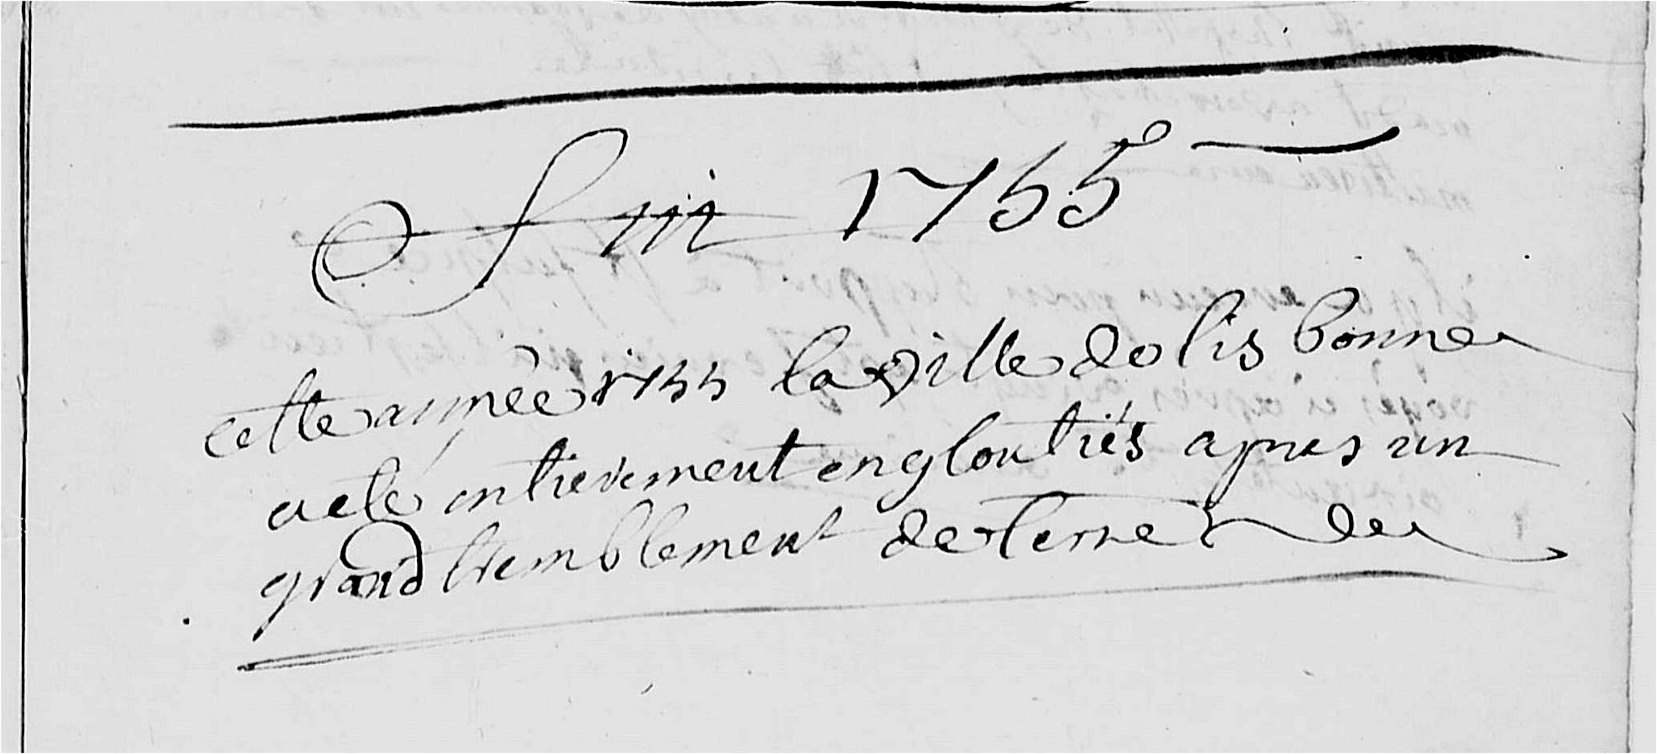 fin 1755
cette année 1755 la ville de lisbonne
a ete entierement engloutiés apres un
grand tremblement de terre